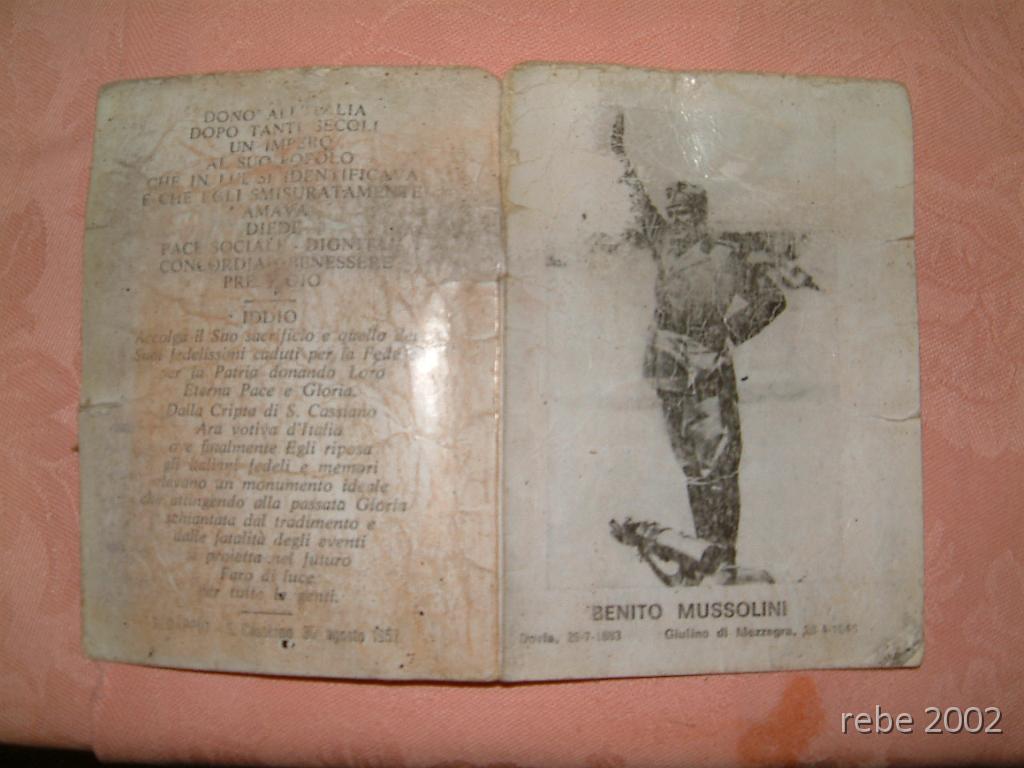 DONO' ALL'ITALIA
DOPO TANTI SECOLI
UN IMPERO
AL SUO POPOLO
CHE IN LUI SI IDENTIFICAVA
E CHE EGLI SMISURATAMENTE
AMAVA
DIEDE
PACE SOCIALE - DIGNITÀ
CONCORDIA - BENESSERE
PRESTIGIO
IDDIO
Accolga il Suo sacrificio e quello dei
Suoi fedelissimi caduti per la Fede e
per la Patria donando Loro
Eterna Pace e Gloria.
Dalla Cripta di S. Cassiano
Ara votiva d'Italia
ove finalmente Egli riposa
gli italiani fedeli e memori
elevano un monumento ideale
che attingendo alla passata Gloria
schiantata dal tradimento e
dalle fatalità degli eventi
si proietta nel futuro
Faro di luce
per tutte le genti.
S. Cassiano 30 agosto 1957
BENITO MUSSOLINI
Dovia, 29-7-1883 Giulino di Mezzegra, 28-4-1945
rebe 2002